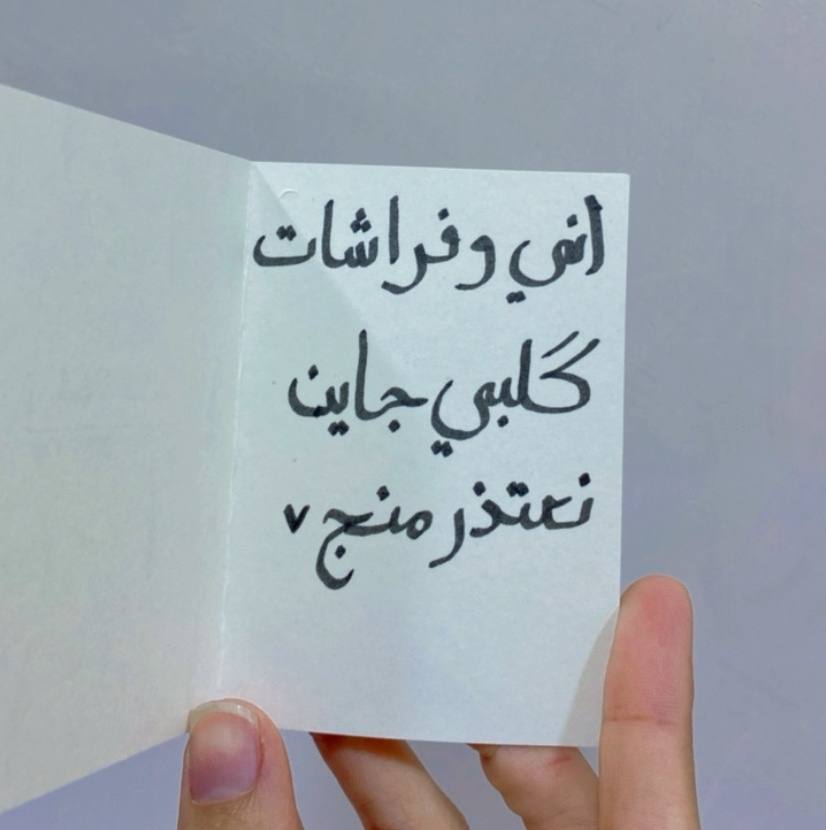 اني وفراشات
گلبي جاين
نعتذر منج ٧